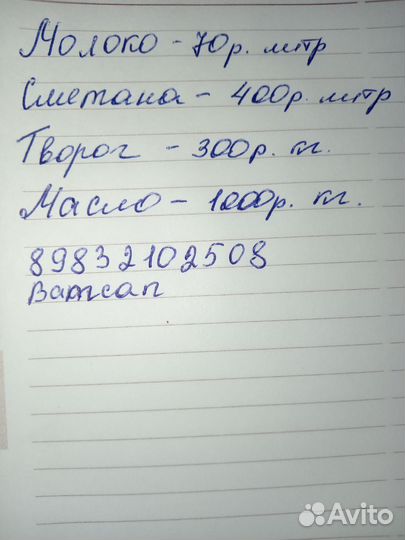 Молоко - 70р. литр
Сметана - 400р. литр
Творог - 300р. кг.
Масло - 1000р. кг.
89832102508
Ватсап
Avito